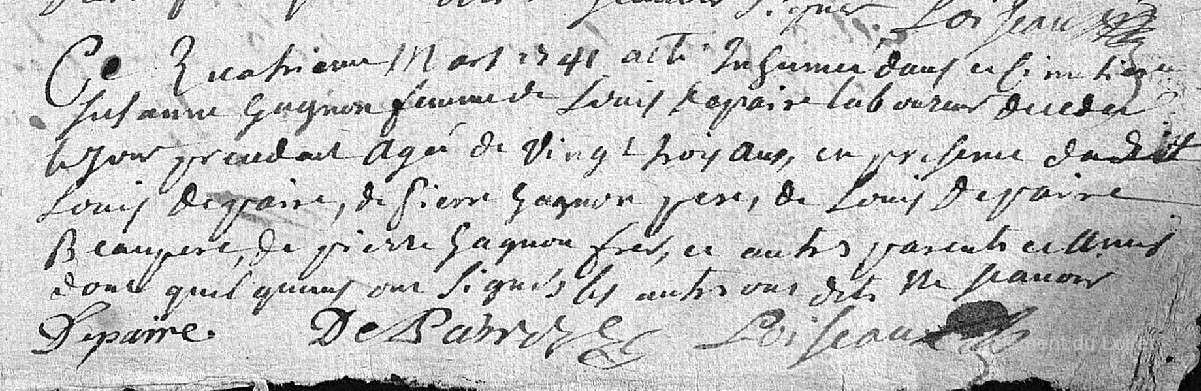 Signer Loiseau
Ce Quatrieme Mars 1741 a eté Inhumée dans ce Simetiere
Susanne Gagnon femme de Louis Depaire laboureur decedée
le Jour precedent Agée de Vingt trois Ans, en presence dudit
Louis Depaire, de Pierre Gagnon pere, de Louis Depaire
Beaupere, de pierre Gagnon frere, et autres parents et Amis
dont quelquuns ont Signés les autres ont dits Ne scavoir
Depaire. De Paire Loiseau